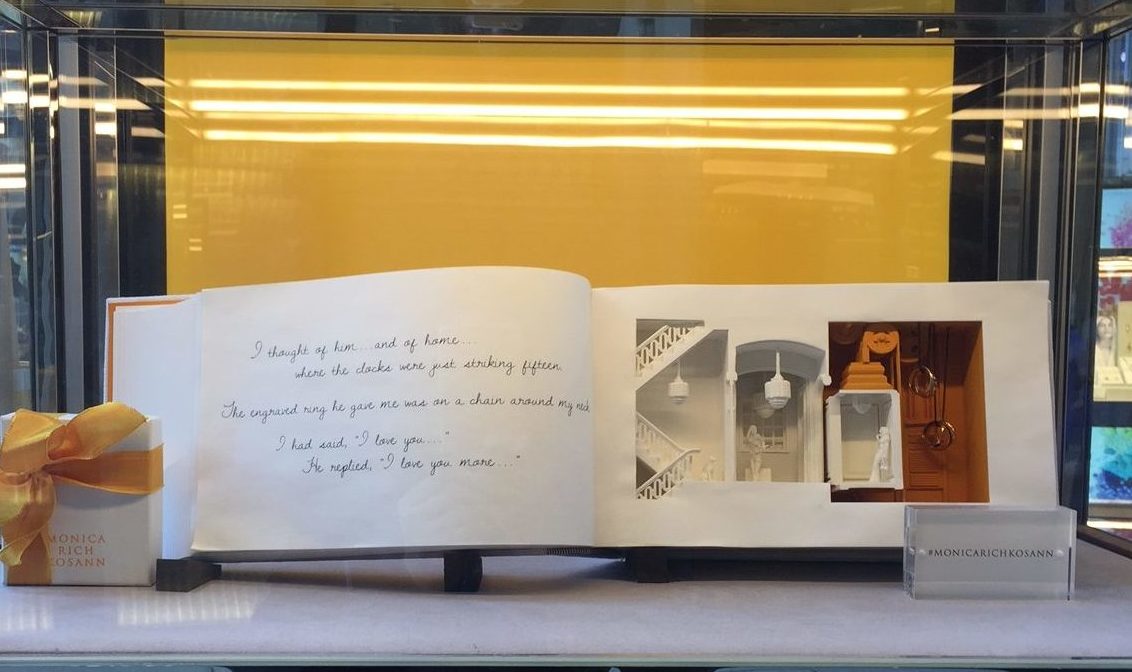 I thought of him...and of home....
where the clocks were just striking fifteen.
The engraved ring he gave me was on a chain around my neck
I had said, "I love you...."
He replied, "I love you more...."
MONICA
RICH
KOSANN
#MONICARICHKOSANN